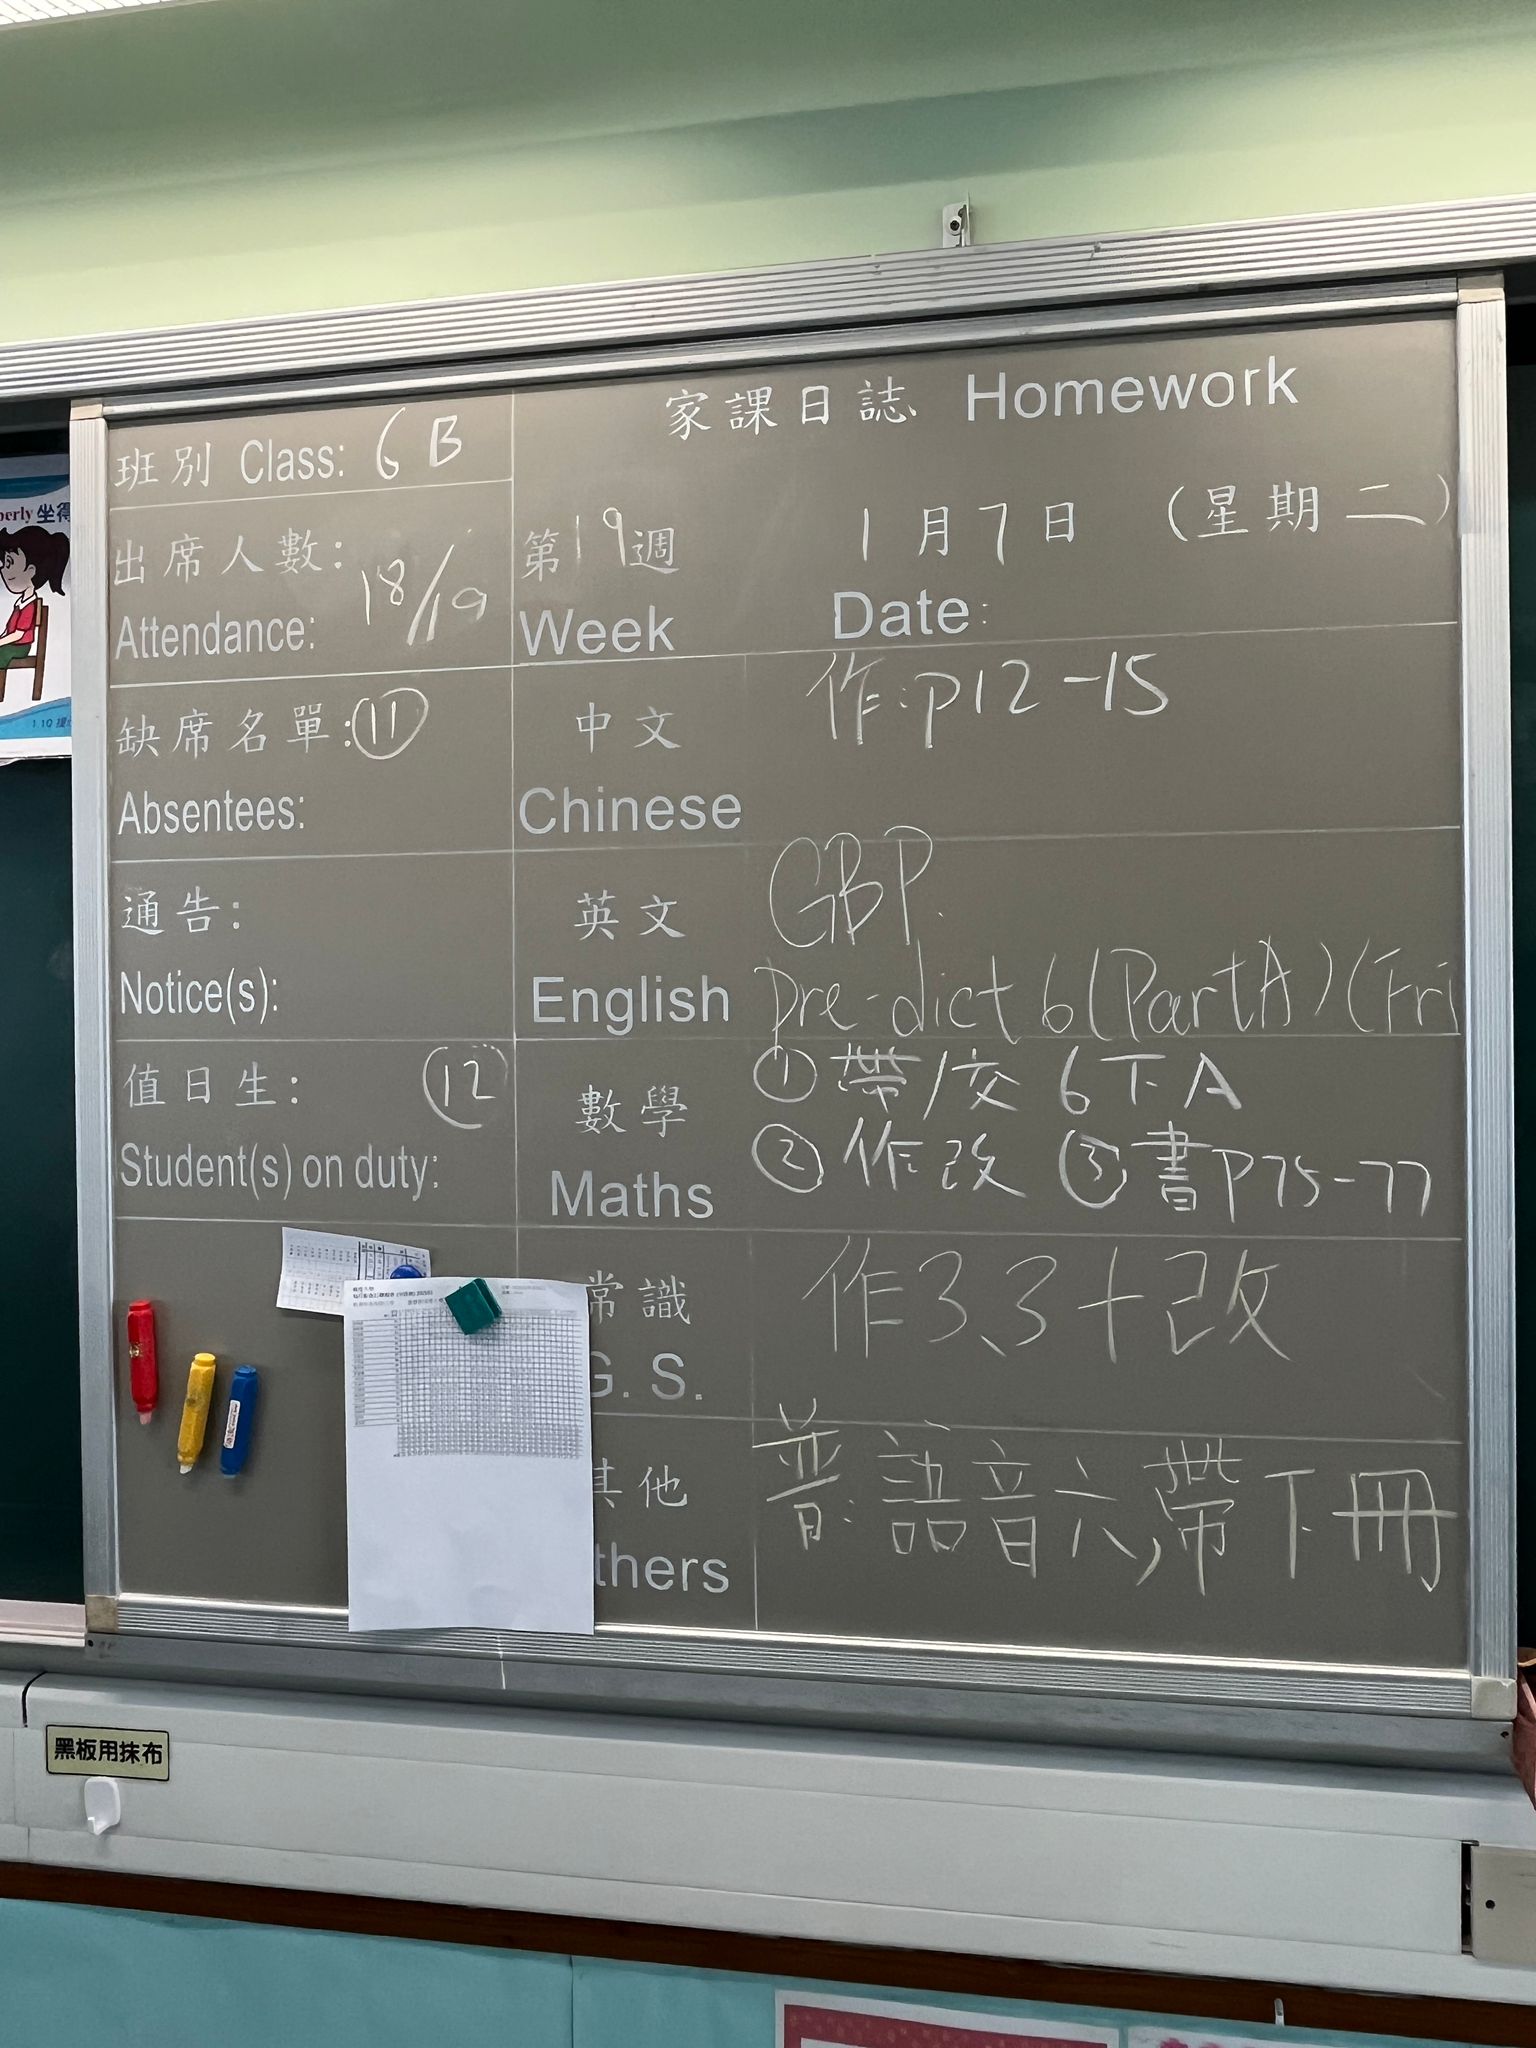 家課日誌 Homework
班別 Class: 6B
出席人數:
Attendance: 18/19
第19週
Week
1月7日 (星期二)
Date:
缺席名單: ⑪
Absentees:
中文
Chinese
作:p12-15
通告:
Notice(s):
英文
English
GBP.
pre-dict 6 (Part A) (Fri
值日生: ⑫
Student(s) on duty:
數學
Maths
①帶/交 6下A
②作改 ③書P75-77
常識
G. S.
作3.3+改
其他
thers
普:語音六,帶下冊
黑板用抹布
perly 坐得
1.10